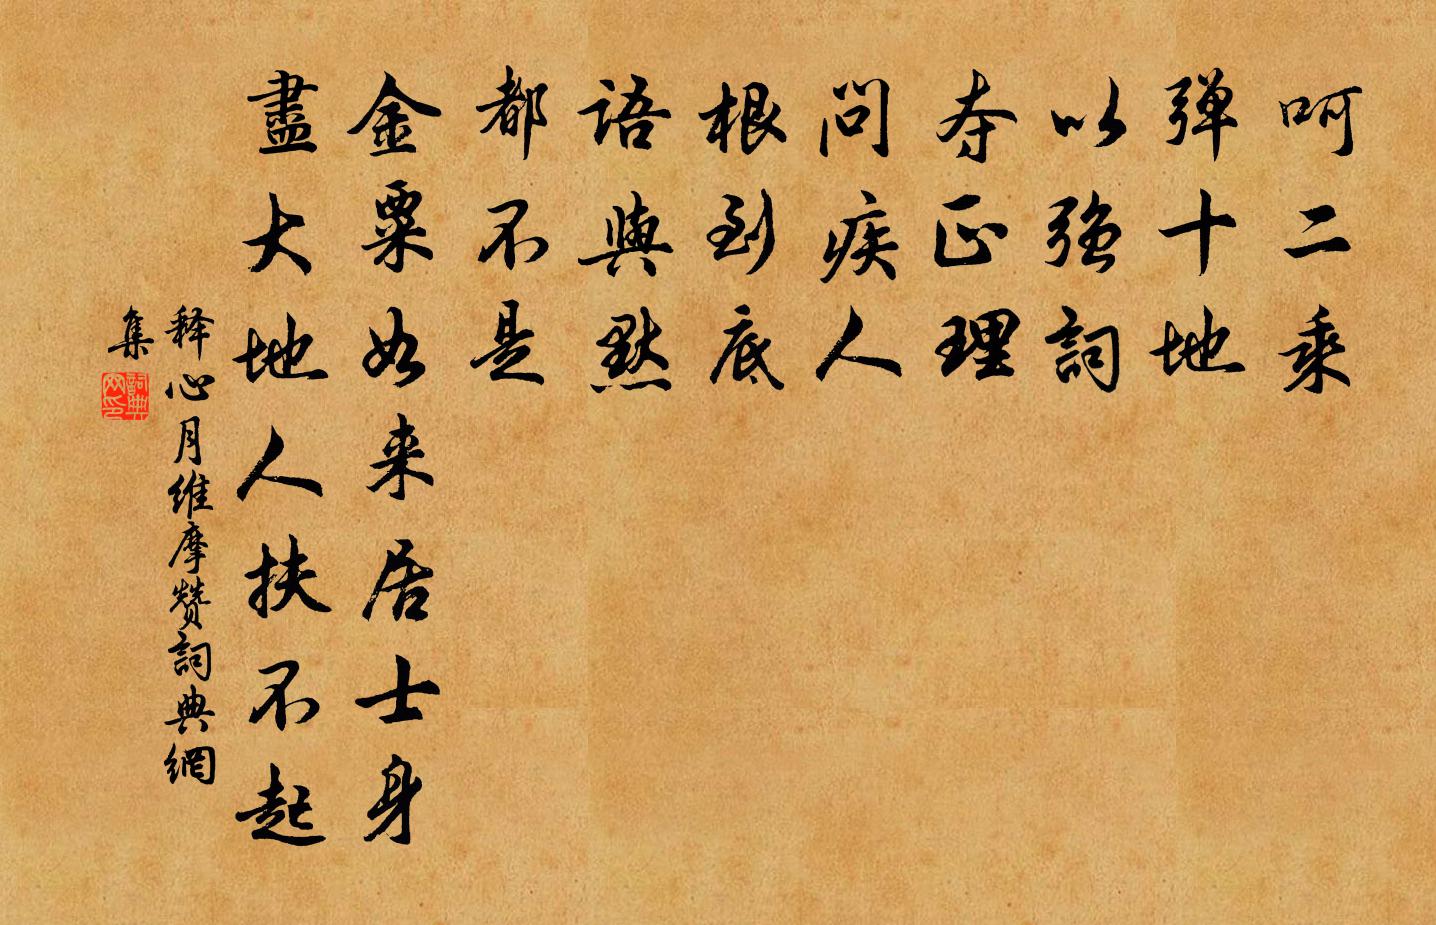 呵二乘
弹十地
以強詞
夺正理
問疾人
根到底
語與默
都不是
金粟如来居士身
盡大地人扶不起
释心月维摩赞詞典網
集
詞典
网印